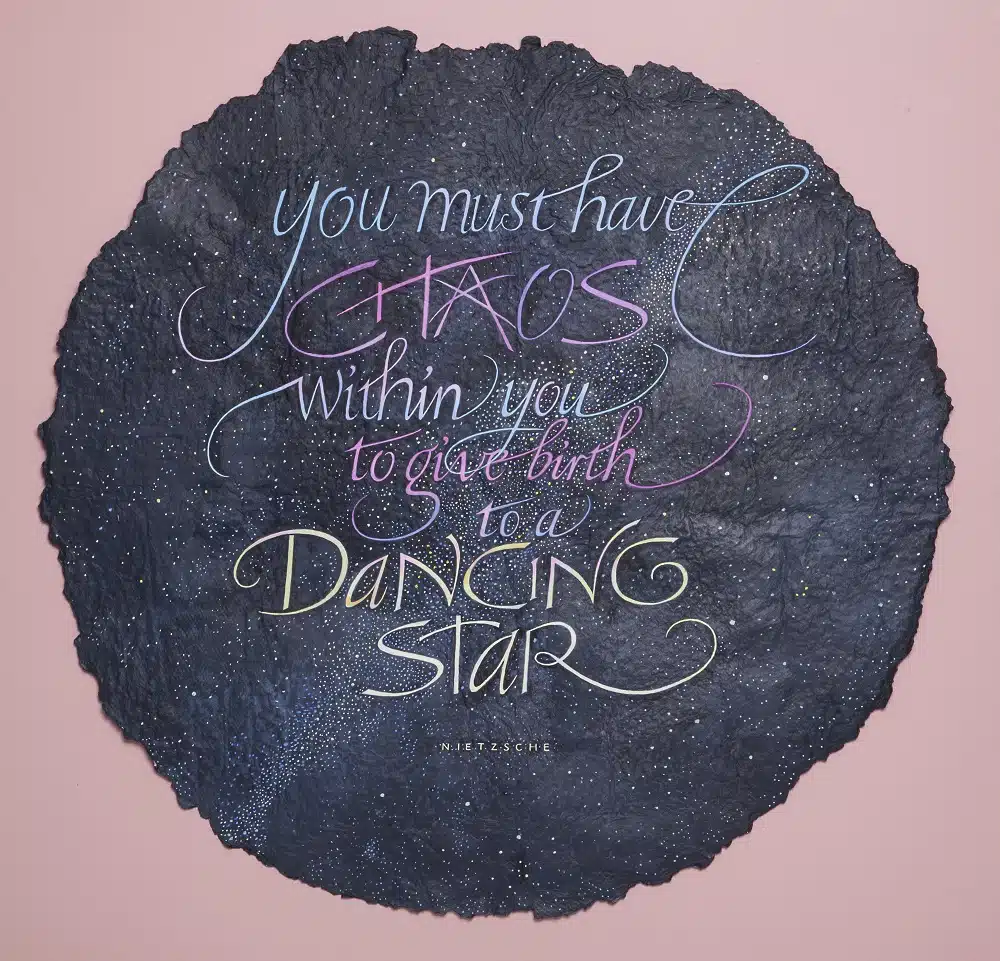 you must have
CHAOS
within you
to give birth
to a
DaNCING
STaR
·N·I·E·T·Z·S·C·H·E·